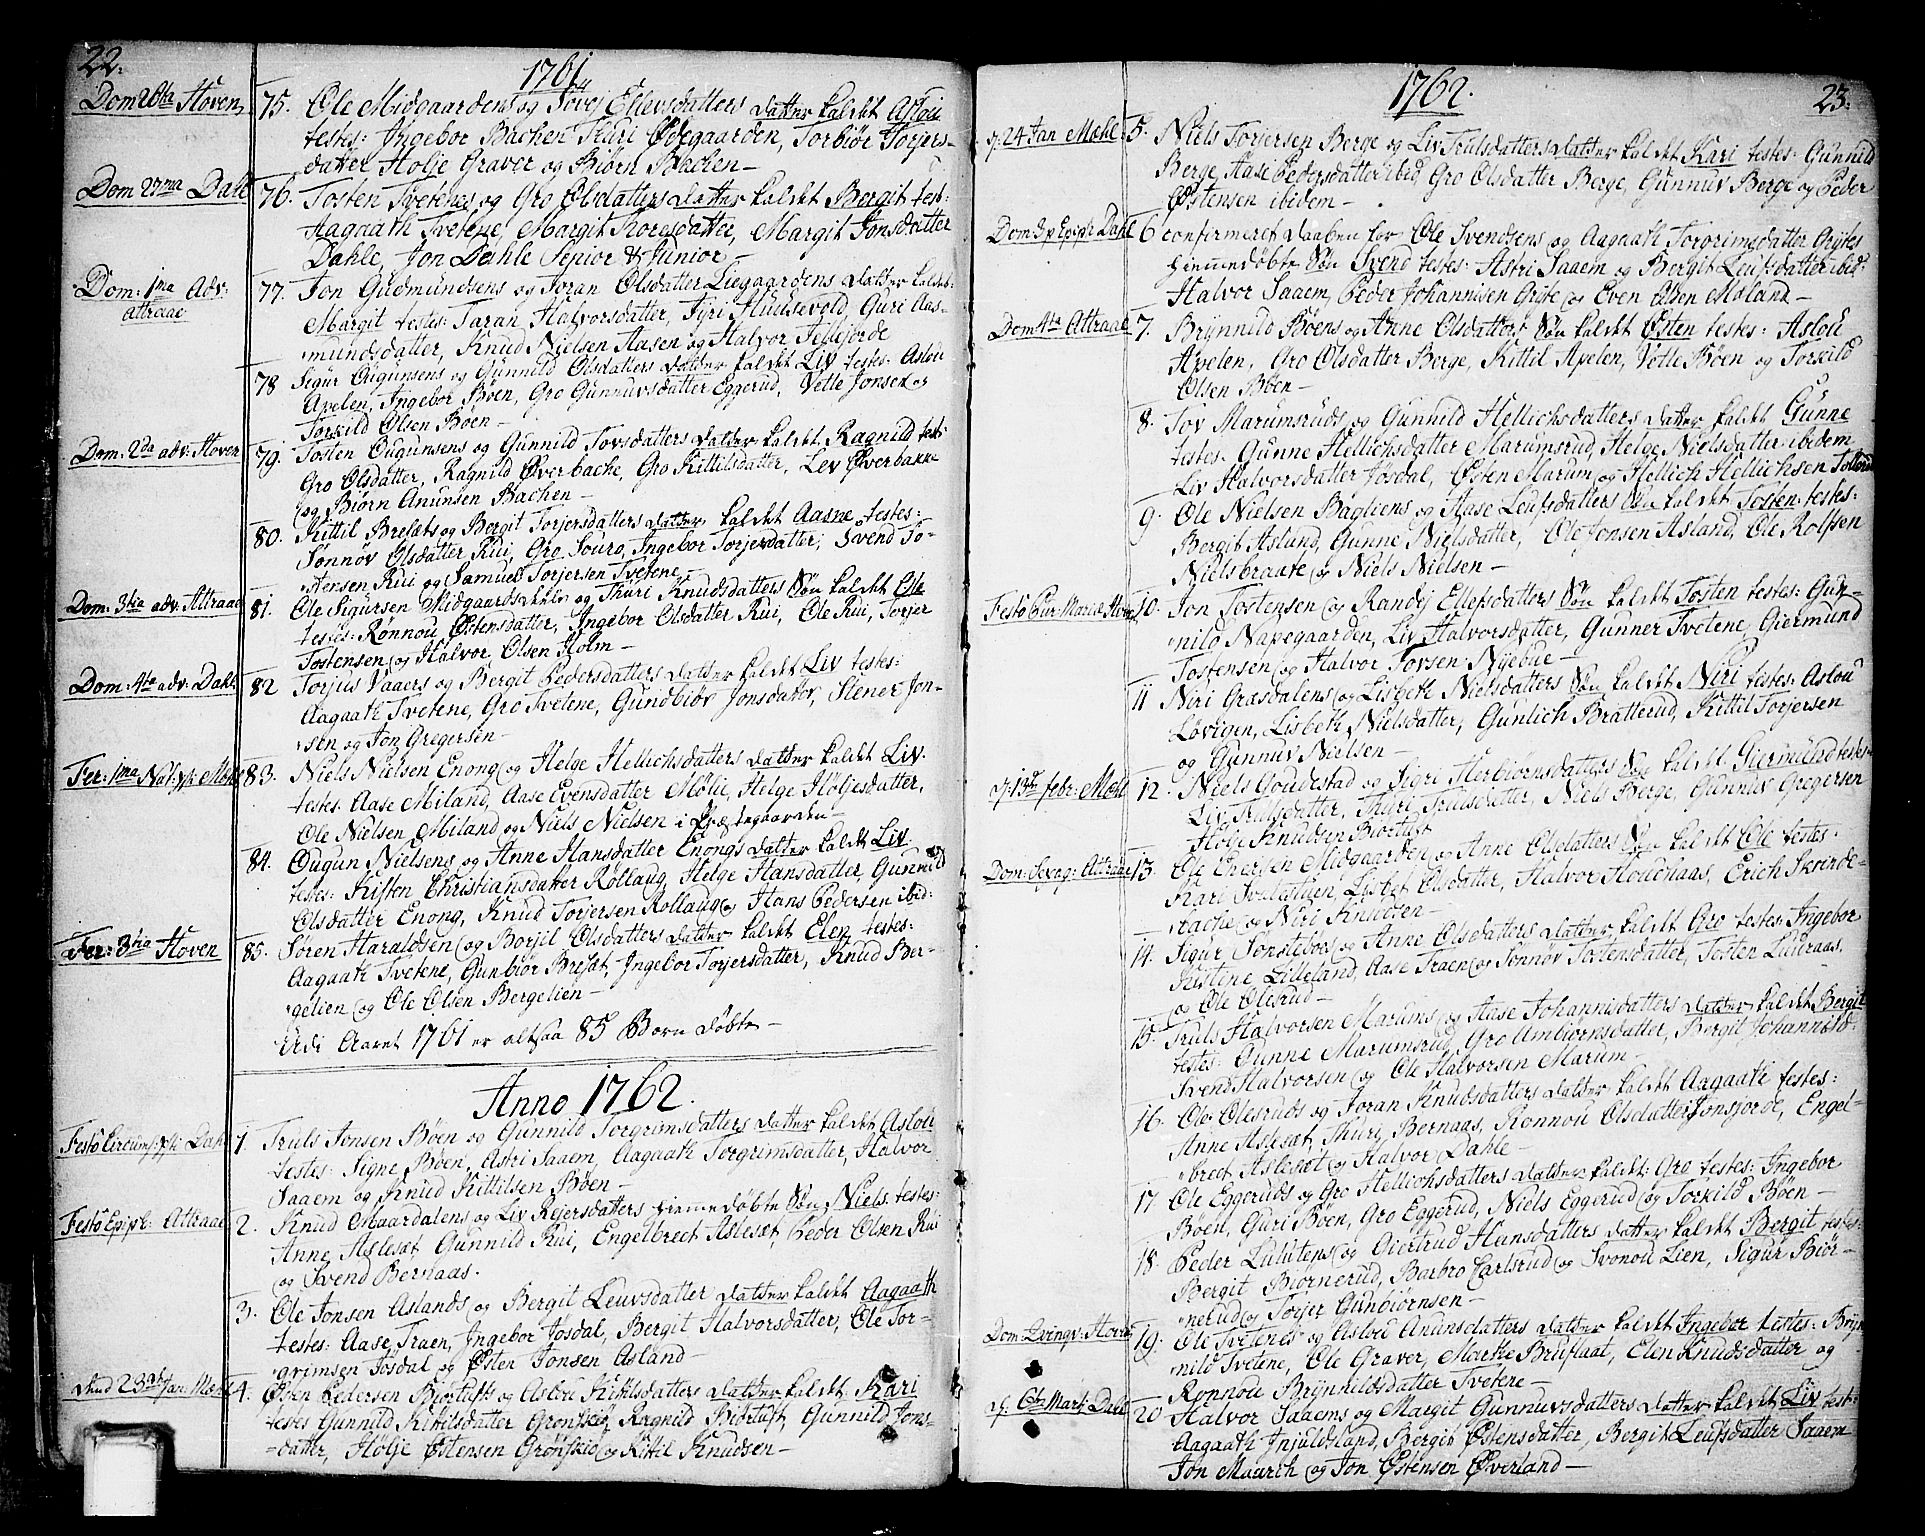 22.
1761
Dom 26ta Hoven
75. Ole Midgaardens og Tovej Ellevsdatters datter kaldet Aslou
testes: Ingebor Bachen Thuri Ødegaarden, Torbiør Torjers-
datter Holje Graver og Biørn Bachen —
Dom 27ma Dahl
76. Tosten Tvetenes og Gro Olsdatters datter kaldet Bergit test:
Aagaath Tvetene, Margit datter, Margit Jonsdatter
Dahle, Jon Dahle Senior & Junior —
Dom: 1ma Adv: Attraae
77. Jon Gudmundsens og Joran Olsdatter Liegaardens datter kaldet
Margit testes: Taran Halvorsdatter, Gyri Huusevold, Guri Aas-
mundsdatter, Knud Nielsen Aasen og Halvor
78 Sigur Ougunsens og Gunnild Olsdatters datter kaldet Liv testes: Aslou
Apelen, Ingebor Bøen, Gro Gunnuvsdatter Eggerud, Vetle Jonsen og
Torkild Olsen Bøen —
Dom: 2da adv: Hoven
79. Tosten Ougunsens og Gunnild Tovsdatters datter kaldet Ragnild test:
Gro Olsdatter, Ragnild Øverbache, Gro Kittilsdatter, Lev Øverbakke
og Biørn Anunsen Bachen —
80. Kittil Bresæts og Bergit Torjersdatters datter kaldet Aasne testes:
Sønnøv Olsdatter Rui, Gro Souro, Ingebor Torjersdatter, Svend To-
stensen Rui og Samuel Torjersen Tvetene —
Dom: 3tia adv: Attraae
81. Ole Sigursen Midgaards og Thuri Knudsdatters Søn kaldet Ole
testes: Rønnou Østensdatter, Ingebor Olsdatter Rui, Ole Rui, Torjer
Tostensen og Halvor Olsen Holm —
Dom: 4ta adv: Dahl
82 Torjus Vaaers og Bergit Pedersdatters datter kaldet Liv testes:
Aagaath Tvetene, Gro Tvetene, Gundbiør Jonsdatter, Stener Jon-
sen og Jon Gregersen —
Fer: 1ma Nat: Mæhl
83. Niels Nielsen Enong og Helge Hellichsdatters datter kaldet Liv.
testes: Aase Miland, Aase Evensdatter Mølie, Helge Høljesdatter,
Ole Nielsen Miland og Niels Nielsen i Præstegaarden —
84. Ougun Nielsens og Anne Hansdatter Enongs datter kaldet Liv
testes: Kisten Christiansdatter Rollaug, Helge Hansdatter, Gunnild
Olsdatter Enong, Knud Torjersen Rollaug og Hans Pedersen ibid:
Fer: 3tia Hoven
85. Søren Haraldsen og Borjil Olsdatters datter kaldet Elen testes:
Aagaath Tvetene, Gunbiør Bresæt, Ingebor Torjersdatter, Knud Ber-
gelien og Ole Olsen Bergelien —
Udi Aaret 1761 er altsaa 85 Børn døbte —
Anno 1762.
Festo Circums: Dahl
1 Truls Jonsen Bøen og Gunnild Torgrimsdatters datter kaldet Aslou
testes: Signe Bøen, Astri Saaem, Aagaath Torgrimsdatter, Halvor
Saaem og Knud Kittilsen Bøen —
Festo Epiph: Attraae
2. Knud Maardalens og Liv Rejersdatters hiemmedøbte Søn Niels. testes:
Anne Aslesæt, Gunnild Rui, Engelbrect Aslesæt, Peder Olsen Rui
og Svend Bernaas.
3. Ole Jonsen Aslands og Bergit Leuvsdatter datter kaldet Aagaath
testes: Aase Traen, Ingebor Jøsdal, Bergit Halvorsdatter, Ole Tor-
grimsen Jøsdal og Østen Jonsen Asland —
23 Jan: Mæhl
4. Østen Pedersen Biørtufts og Aslou Kittilsdatters datter kaldet Kari
testes Gunnild Kittilsdatter Grønskio, Ragnild Biørtuft, Gunnild Jons-
datter, Hølje Østensen Grønskio og Kittil Knudsen —
1762.
23.
d: 24 Jan Mæhl
5. Niels Torjersen Berge og Liv Trulsdatters datter kaldet Kari testes: Gunnild
Berge, Aase Pedersdatter ibid, Gro Olsdatter Berge, Gunnuv Berge og Peder
Østensen ibidem —
Dom 3 p Epiph Dahl
6 confirmeret daaben for Ole Svendsens og Aagaath Torgrimsdatter Gribes
hiemmedøbte Søn Svend testes: Astri Saaem og Bergit Leufsdatter ibid:
Halvor Saaem, Peder Johannisen Gribe og Even Olsen Møland —
Dom 4ta Attraae
7. Brynnild Bøens og Anne Olsdatters Søn kaldet Østen testes: Aslou
Apelen, Gro Olsdatter Berge, Kittil Apelen, Vetle Bøen og Torkild
Olsen Bøen —
8. Tov Marumsruds og Gunnild Hellichsdatters datter kaldet Gunne
testes: Gunne Hellichsdatter Marumsrud, Helge Nielsdatter ibidem
Liv Halvorsdatter Jøsdal, Østen Marum og Hellich Hellichsen
9. Ole Nielsen Bagliens og Aase Leufsdatters Søn kaldet Tosten: testes:
Bergit Aslund, Gunne Nielsdatter, Ole Jonsen Asland, Ole Rolfsen
Nielsbraate og Niels Nielsen —
Festo Pur: Mariæ Hoven
10. Jon Tostensen og Randej Ellefsdatters Søn kaldet Tosten testes: Gun-
nild Navegaarden, Liv Halvorsdatter, Gunner Tvetene, Giermund
Tostensen og Halvor Torsen Nyebue —
11 Niri Grasdalens og Lisbeth Nielsdatters Søn kaldet Niri testes: Aslou
Løvigen, Lisbeth Nielsdatter, Gunlich Bratterud, Kittil Torjersen
og Gunnuv Nielsen —
d: 13de febr: Mæhl
12. Niels Goudestad og Sigri Herbiornsdatters Søn kaldet Giermund testes:
Liv Trulsdatter, Thuri Trulsdatter, Niels Berge, Gunnuv Gregersen
Holje Knudsen Biørtuft
Dom: Sexag: Attraae
13. Ole Enersen Midgaarden og Anne Olsdatters Søn kaldet Ole testes:
Kari, Lisbet Olsdatter, Halvor Houchaas, Erich Skrinde-
bache og Niri Knudsen —
14. Sigur Sønstebøes og Anne Olsdatters datter kaldet Gro testes: Ingebor
Kistine Lilleland, Aase Traen og Sønnøv Tostensdatter, Tosten Luuraas,
og Ole Olesrud —
15. Truls Halvorsen Marums og Aase Johannisdatters datter kaldet Bergit
testes: Gunne Marumsrud, Gro Ambiornsdatter, Bergit Johannisd:
Svend Halvorsen og Ole Halvorsen Marum —
16. Ole Olesruds og Joran Knudsdatters datter kaldet Aagaath testes:
Anne Aslesæt, Thuri Bernaas, Rønnou Olsdatter Jonsjorde, Engel-
brect Aslesæt og Halvor Dahle —
17 Ole Eggeruds og Gro Hellichsdatters datter kaldet: Gro testes: Ingebor
Bøen, Guri Bøen, Gro Eggerud, Niels Eggerud og Torkild Bøen —
18. Peder og Giertrud Hansdatters datter kaldet Bergit testes:
Bergit Biørnerud, Barbro Carlsrud og Svonou Lien, Sigur Biør-
nerud og Torjer Gunbiørnsen —
Dom: Qvinqv: Hoven
19. Ole Tvetenes og Asloed Anunsdatters datter kaldet Ingebor testes: Bryn
nild Tvetene, Ole Graver, Marthe Bruflaat, Elen Knudsdatter og
Rønnou Brynnildsdatter Tvetene —
d: 6te Mart: Dahl
20 Halvor Saaems og Margit Gunnuvsdatters datter kaldet Liv test:
Aagaath Injuldsland, Bergit Østensdatter, Bergit Leufsdatter Saaem
Jon Maarch og Jon Østensen Øverland —